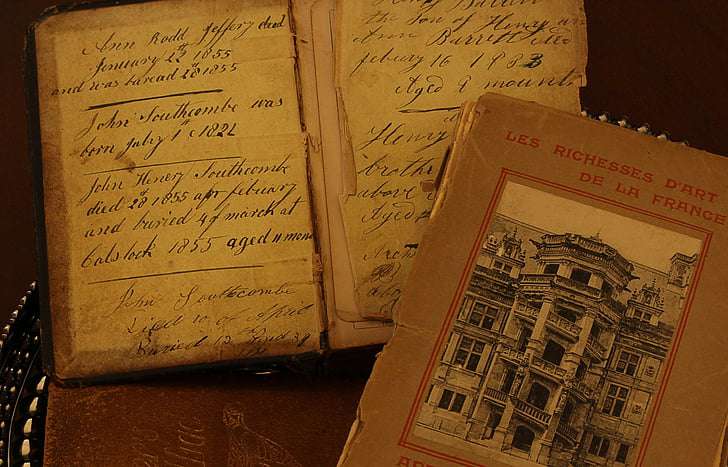 Ann Rodd Jeffery died
January 22th 1855
and was buread 28 1855
John Southcombe was
born july 1st 1822
John Henery Southcombe
died 28th 1855 apr febuary
and buried 4 of march at
Calstock 1855 aged 11 mon
John Southcombe
Died 10 of April
Buried 13
Henery Burrett
the son of Henery an
Ann Burrett died
febury 16 1883
Aged 9 mounth
Henry
brothe
above
Aged
LES RICHESSES D'ART
DE LA FRANCE